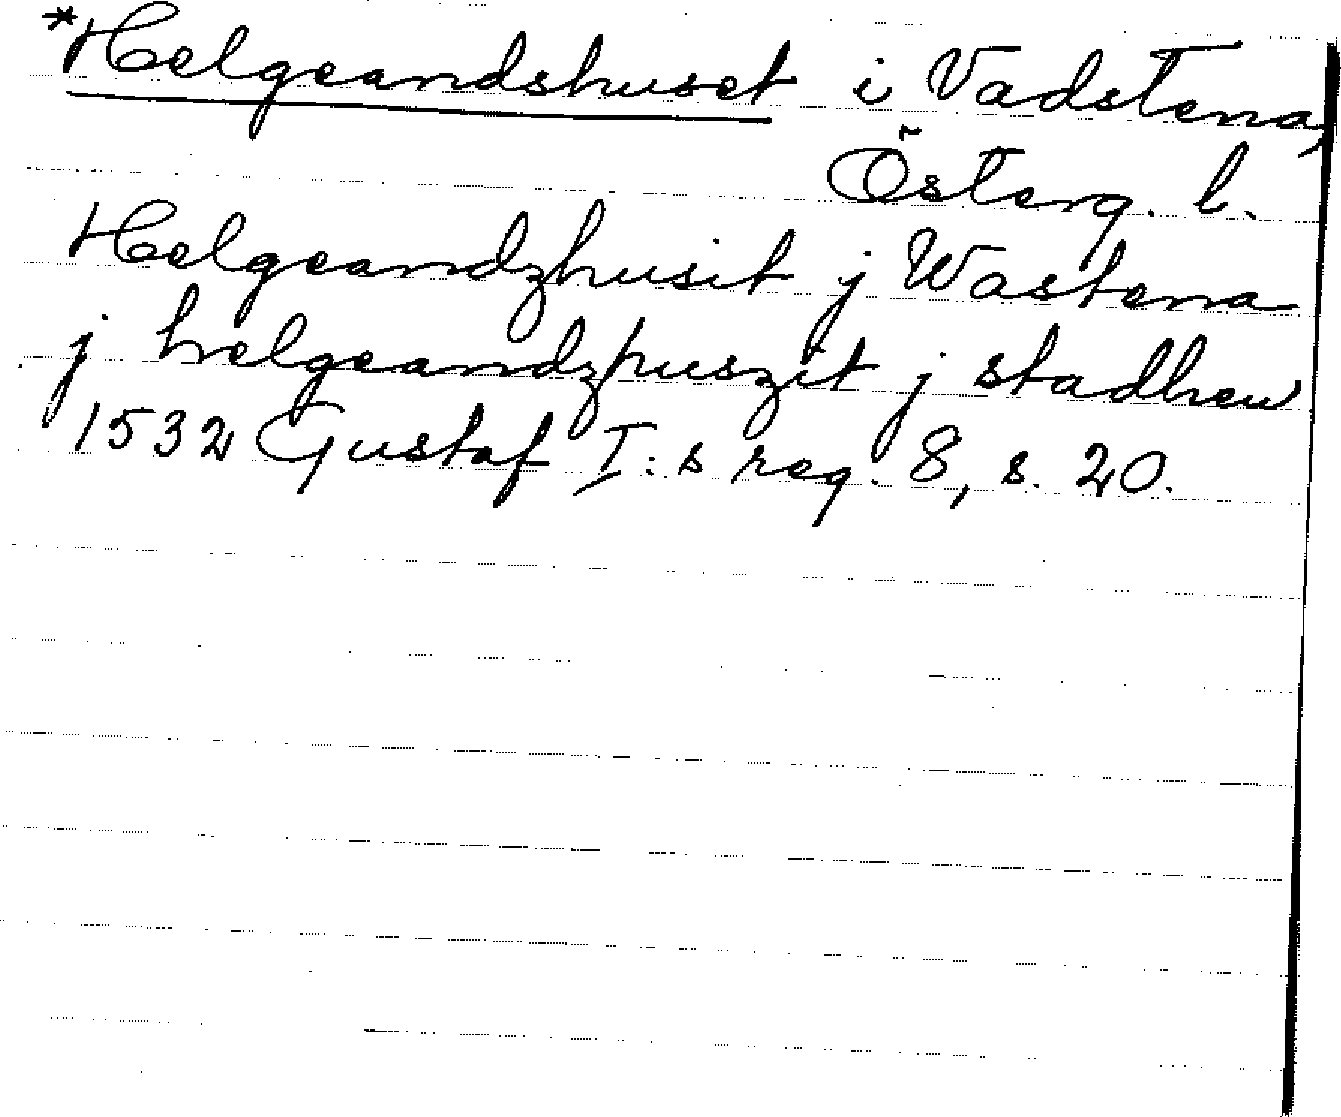 *Helgeandshuset i Vadstena,
Österg. l.
Helgeandzhusit j Wastena
j helgeandzhuszit j stadhen
1532 Gustaf I:s reg. 8, s. 20.